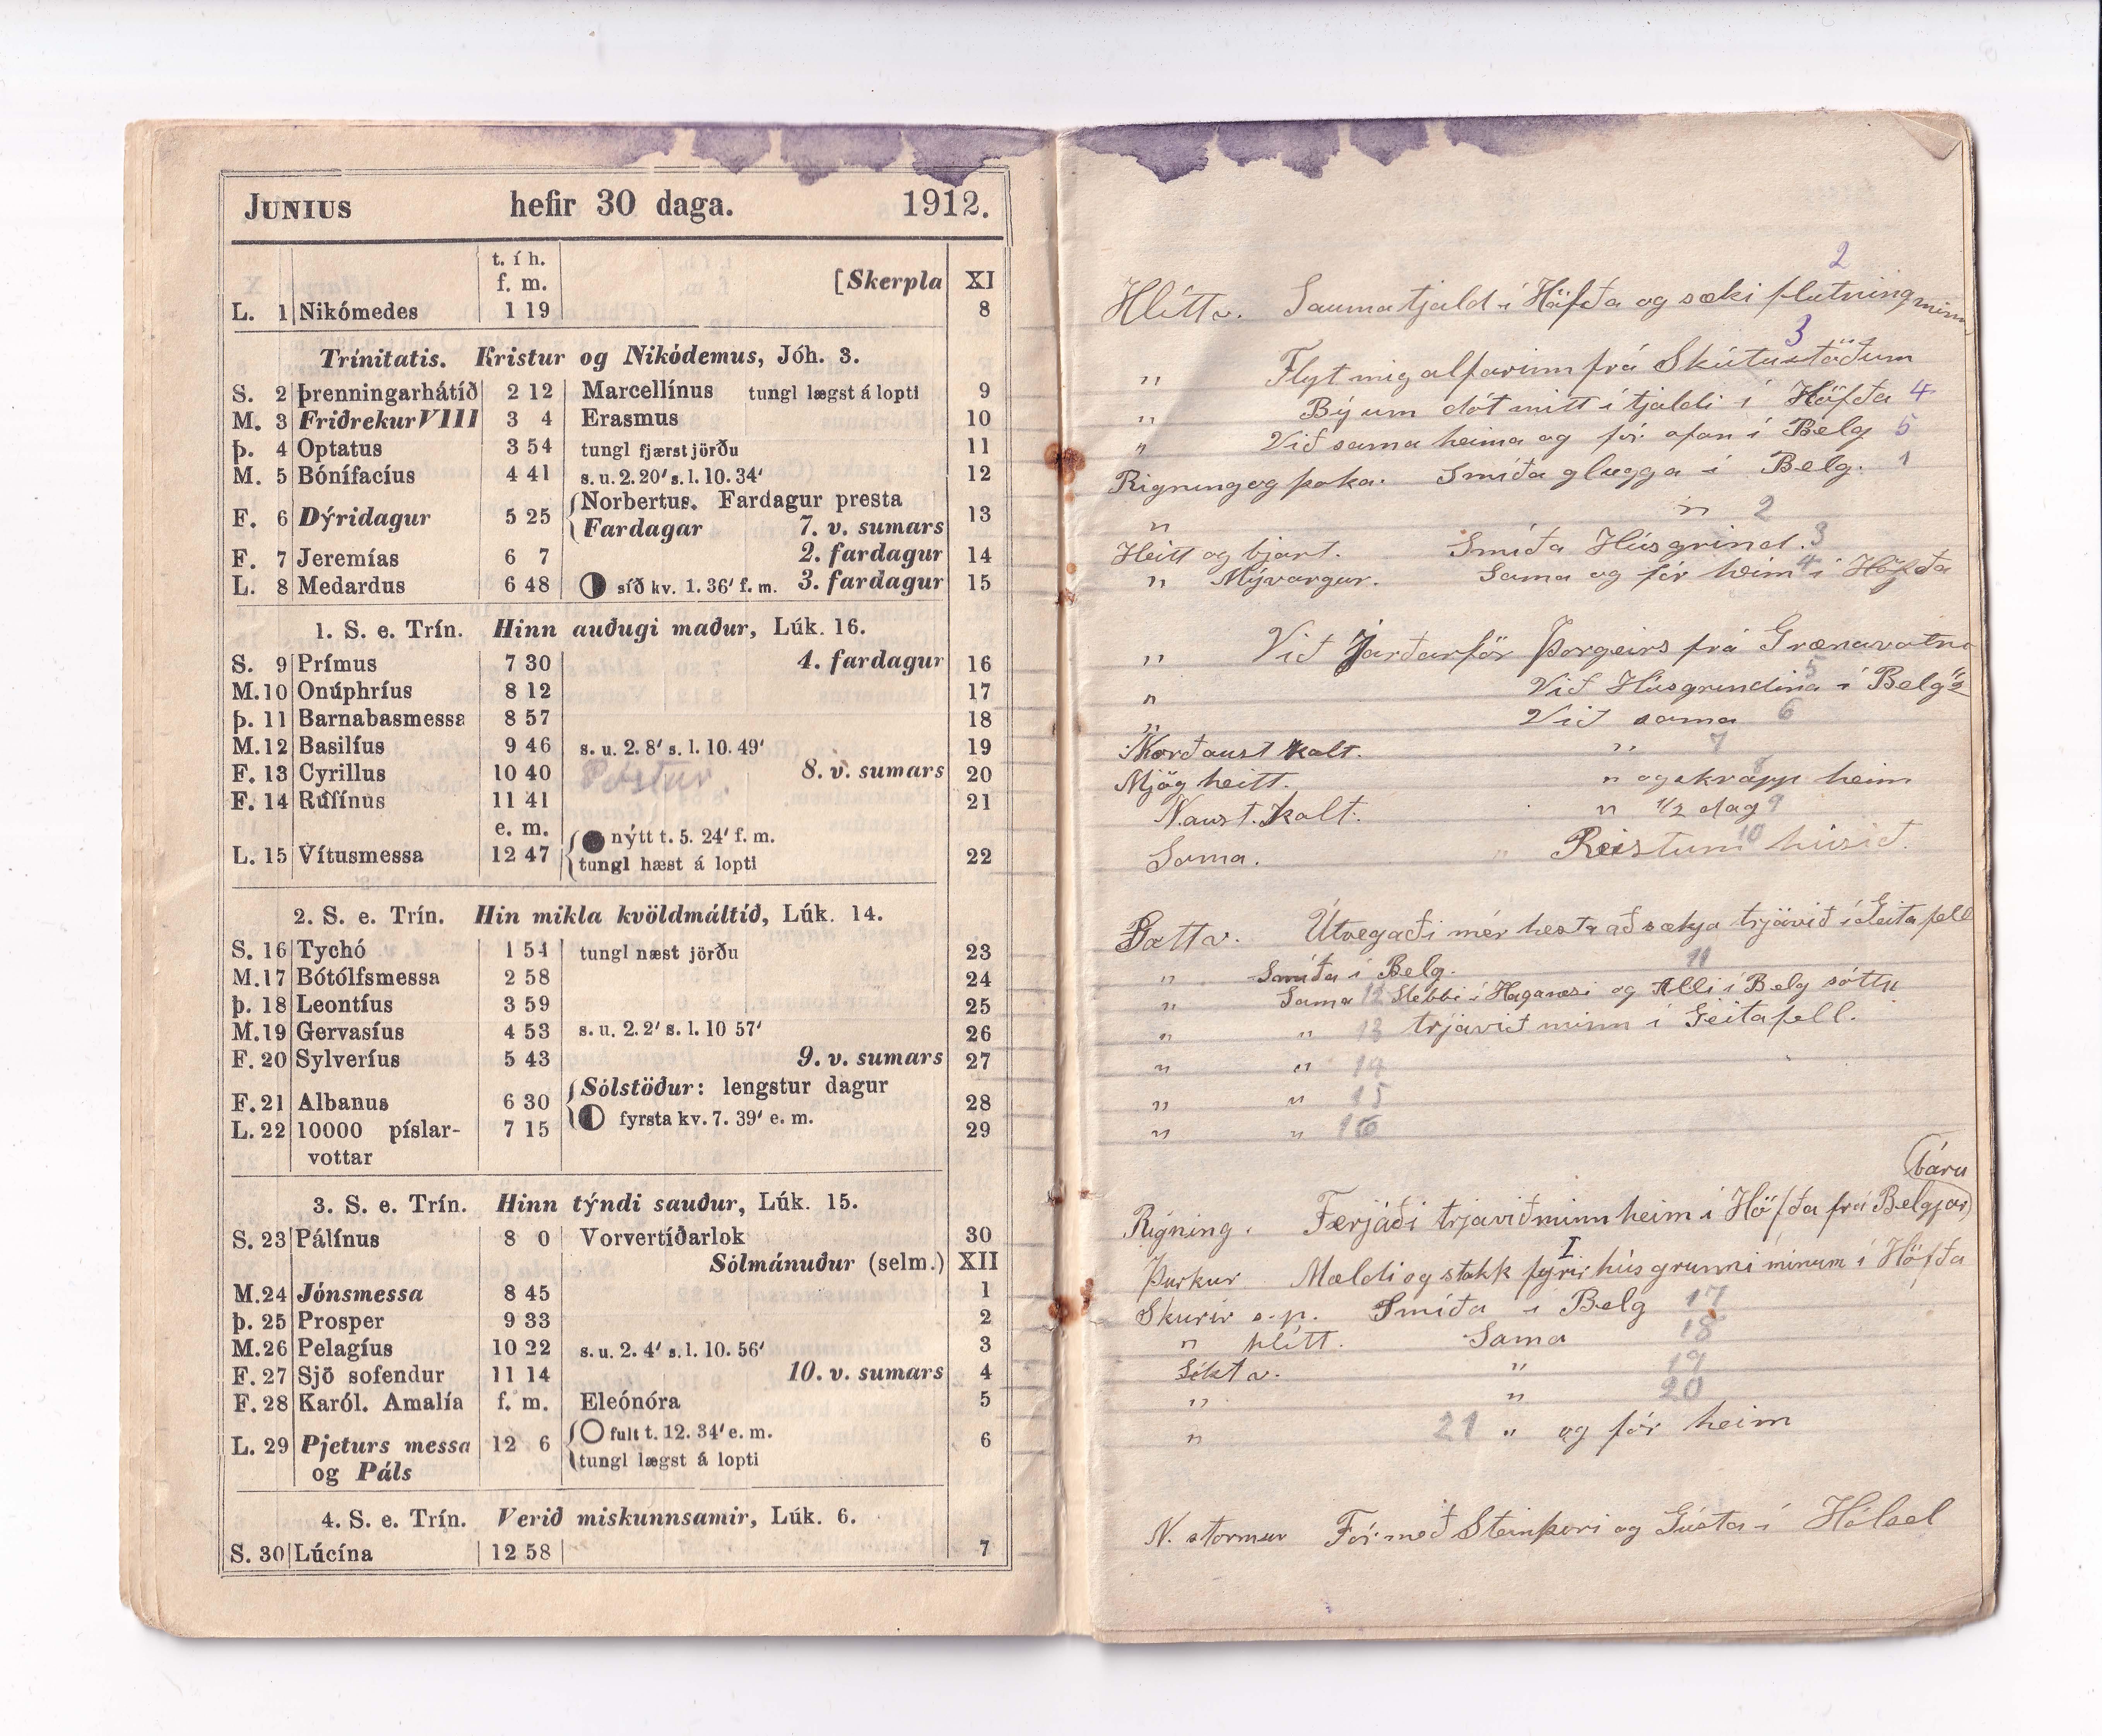 JUNIUS hefir 30 daga. 1912.
t. í h.
f. m. [Skerpla XI
L. 1 Nikómedes 1 19 8
Trínitatis. Kristur og Nikódemus, Jóh. 3.
S. 2 Þrenningarhátíð 2 12 Marcellínus tungl lægst á lopti 9
M. 3 Friðrekur VIII 3 4 Erasmus 10
Þ. 4 Optatus 3 54 tungl fjærst jörðu 11
M. 5 Bónífacíus 4 41 s. u. 2. 20' s. l. 10. 34' 12
F. 6 Dýridagur 5 25 Norbertus. Fardagur presta 13
Fardagar 7. v. sumars
F. 7 Jeremías 6 7 2. fardagur 14
L. 8 Medardus 6 48 síð kv. 1. 36' f. m. 3. fardagur 15
1. S. e. Trín. Hinn auðugi maður, Lúk. 16.
S. 9 Prímus 7 30 4. fardagur 16
M. 10 Onúphríus 8 12 17
Þ. 11 Barnabasmessa 8 57 18
M. 12 Basilíus 9 46 s. u. 2. 8' s. l. 10. 49' 19
F. 13 Cyrillus 10 40 Póstur. 8. v. sumars 20
F. 14 Rúfínus 11 41 21
e. m.
L. 15 Vítusmessa 12 47 nýtt t. 5. 24' f. m. 22
tungl hæst á lopti
2. S. e. Trín. Hin mikla kvöldmáltíð, Lúk. 14.
S. 16 Tychó 1 54 tungl næst jörðu 23
M. 17 Bótólfsmessa 2 58 24
Þ. 18 Leontíus 3 59 25
M. 19 Gervasíus 4 53 s. u. 2. 2' s. l. 10 57' 26
F. 20 Sylveríus 5 43 9. v. sumars 27
F. 21 Albanus 6 30 Sólstöður: lengstur dagur 28
fyrsta kv. 7. 39' e. m.
L. 22 10000 píslar- 7 15 29
vottar
3. S. e. Trín. Hinn týndi sauður, Lúk. 15.
S. 23 Pálínus 8 0 Vorvertíðarlok 30
Sólmánuður (selm.) XII
M. 24 Jónsmessa 8 45 1
Þ. 25 Prosper 9 33 2
M. 26 Pelagíus 10 22 s. u. 2. 4' s. l. 10. 56' 3
F. 27 Sjö sofendur 11 14 10. v. sumars 4
F. 28 Karól. Amalía f. m. Eleónóra 5
L. 29 Pjeturs messa 12 6 fult t. 12. 34' e. m. 6
og Páls tungl lægst á lopti
4. S. e. Trín. Verið miskunnsamir, Lúk. 6.
S. 30 Lúcína 12 58 7
2
Hlítt v. Sauma tjald í Höfða og sæki flutning minn
3
" Flyt mig alfarinn frá Skútustöðum
" Bý um dót mitt í tjaldi í Höfða 4
" Við sama heima og fór ofan í Belg 5
Rigning og þoka. Smíða glugga í Belg. 1
" " 2
Heitt og bjart. Smíða Húsgrind. 3
" Mývargur. Sama og fór heim 4 í Höfða
" Við Jarðarför Þorgeirs frá Grænavatni
5
" Við Húsgrindina í Belg 1/2
" Við sama 6
Norðaust kalt. " 7
Mjög heitt. " og skrapp heim 8
N.aust. kalt. " 1/2 dag 9
Sama. " Reistum 10 húsið.
Þott v. Útvegaði mér hesta að sækja trjávið í Geitafell
" Smíða í Belg. 11
" Sama 12 Stebbi í Haganesi og Alli í Belg sóttu
" " 13 trjávið minn í Geitafell.
" " 14
" " 15
" " 16
báru
Rigning. Ferjaði trjáviðminn heim í Höfða frá Belgjar
I
Þurkur Mældi og stakk fyrir húsgrunni mínum í Höfða
Skúrir s.p. Smíða í Belg 17
" hlítt. Sama 18
Líkt v. " 19
" " 20
" 21 " og fór heim
N. stormur Fór með Steinþóri og Gústa í Hólsel